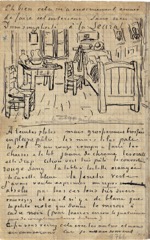 Eh bien cela m'a énormément amusé
de faire cet intérieur sans rien
d'une simplicité à la Seurat
à teintes plates mais grossièrement brossées
en pleine pâte les murs lilas pâle
le sol d'un rouge rompu & fané les
chaises & le lit jaune de chrome les oreillers
et le drap citron vert très pâle la couverture
rouge sang la table à toilette orangée
la cuvette bleue la fenêtre verte
J'aurais voulu exprimer un repos
absolu par tous ces tons très divers
vous voyez et où il n'y a de blanc que
la petite note que donne le miroir à
cadre noir (pour fourrer encore la quatrième
Enfin vous verrez cela avec les autres et nous en